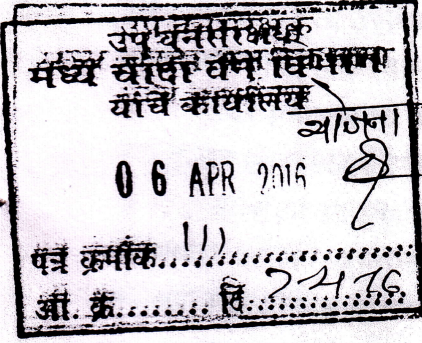 उप वनसंरक्षक
मध्य चांदा वन विभाग
यांचे कार्यालय
योजना
06 APR 2016
पत्र क्रमांक..........
आ. क्र......... दि..........